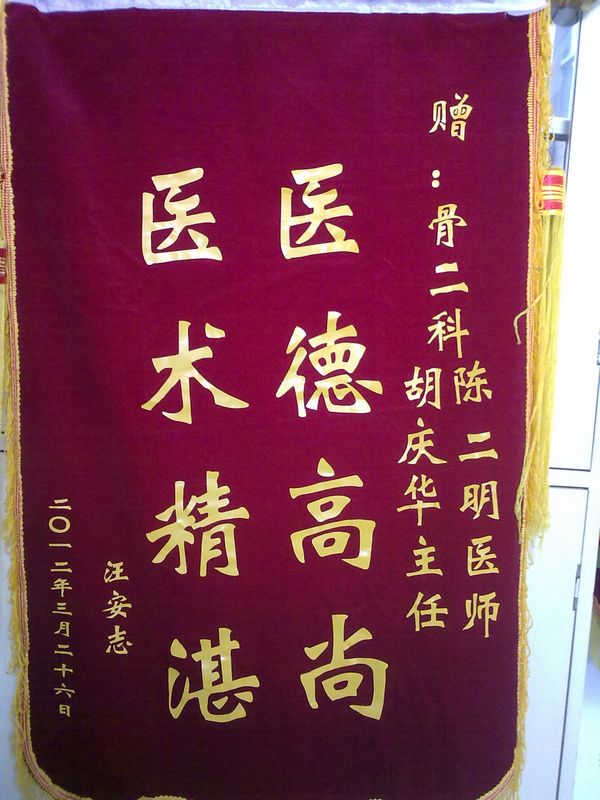 赠：骨二科
陈二明医师
胡庆华主任
医德高尚
医术精湛
汪安志
二〇一二年三月二十六日